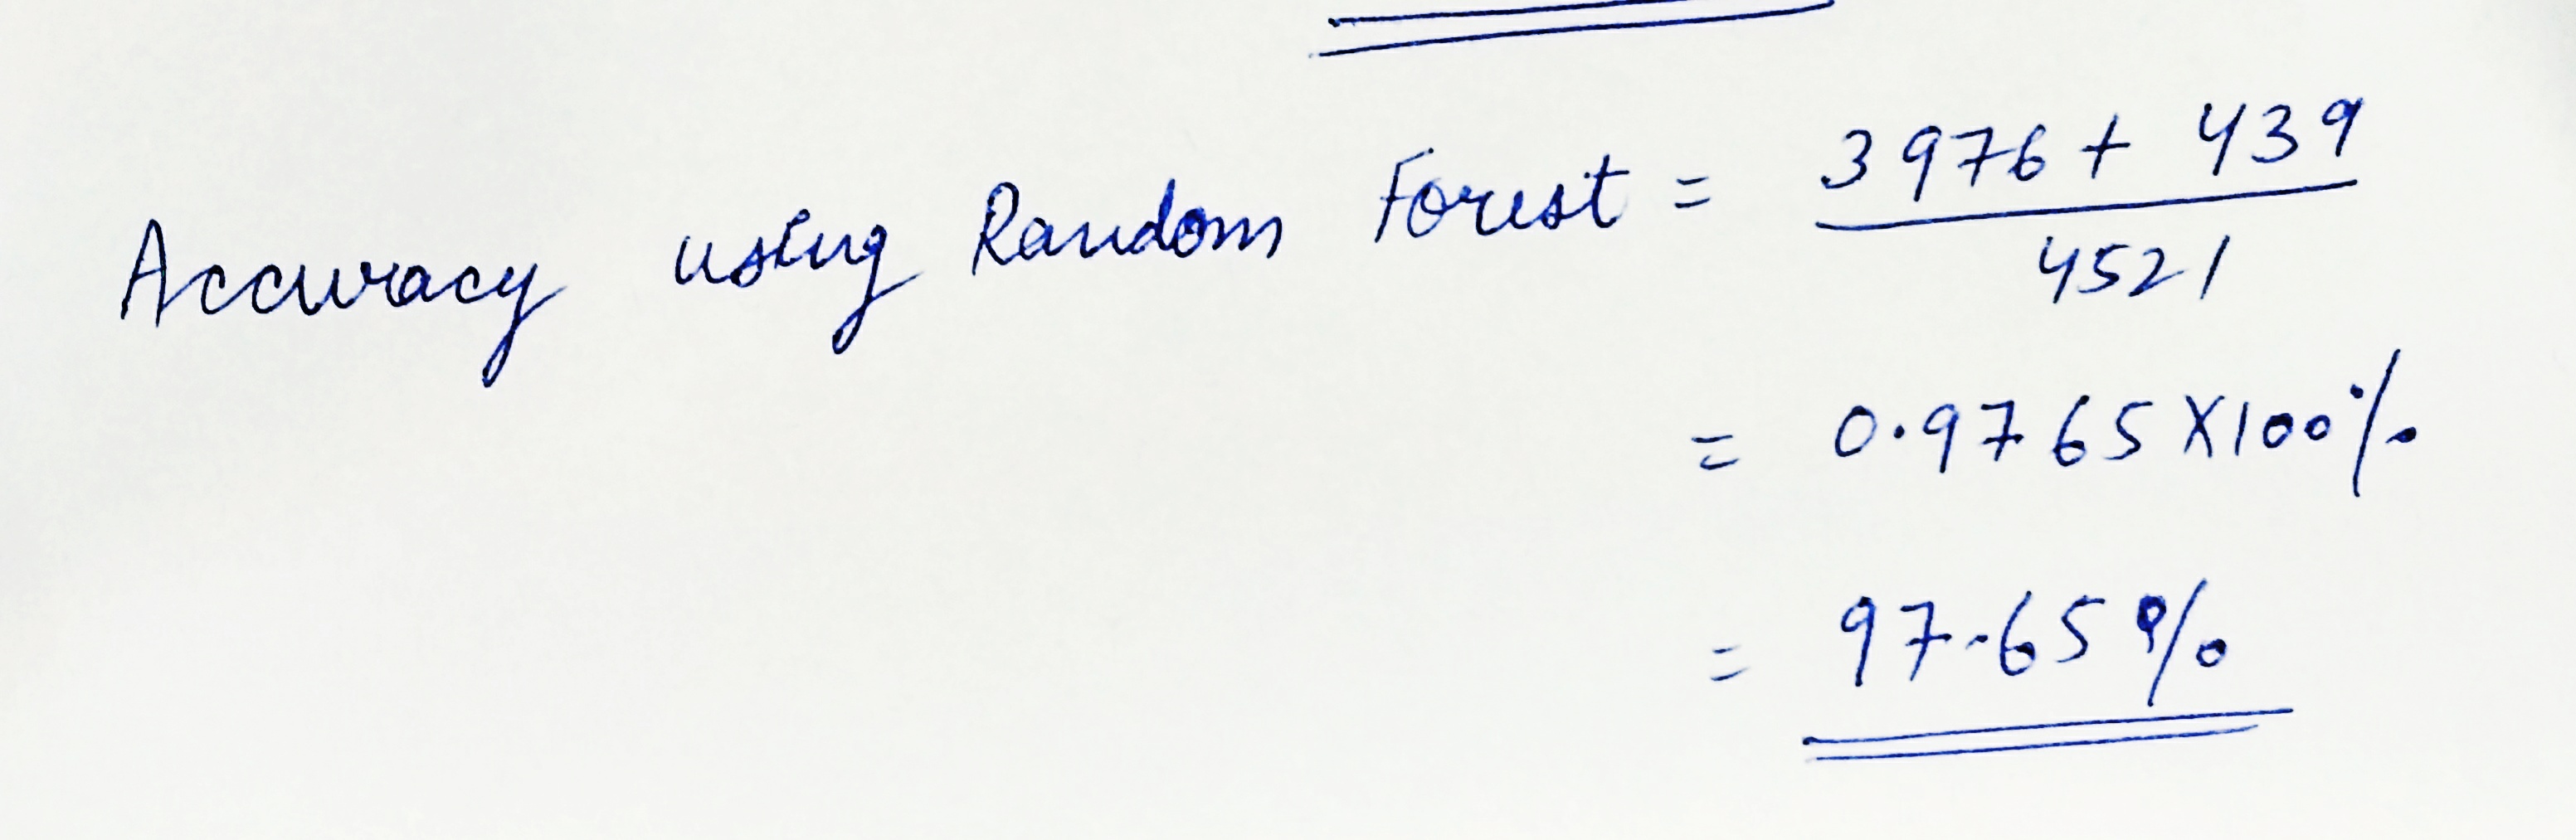 Accuracy using Random Forest = 3976 + 439 / 4521
= 0.9765 X 100%
= 97.65%